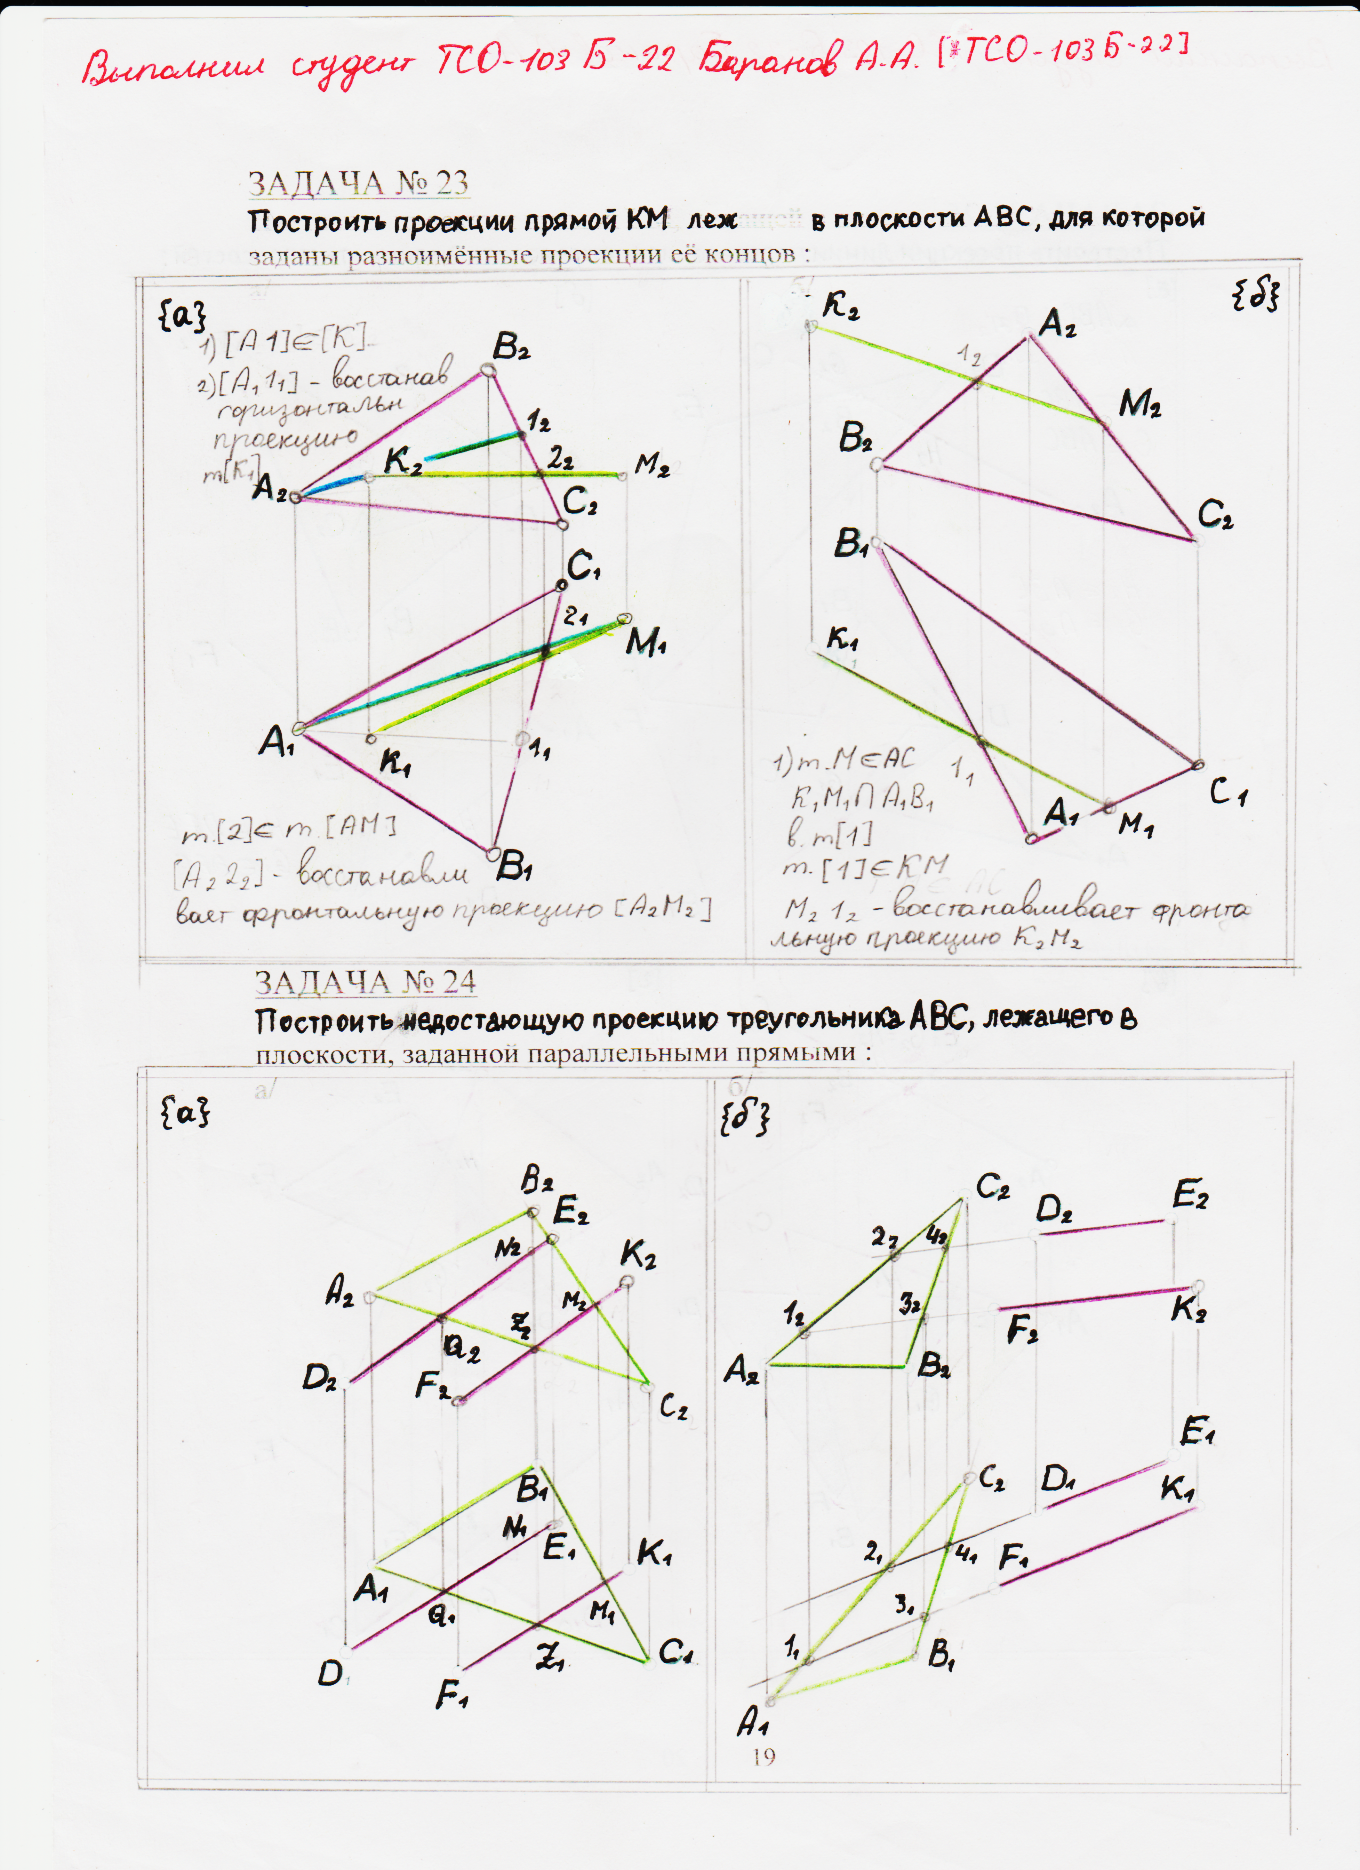 Выполнил студент ТСО-103Б-22 Баранов А.А. [ТСО-103Б-22]
ЗАДАЧА № 23
Построить проекции прямой КМ леж в плоскости АВС, для которой
заданы разноимённые проекции её концов :
{а}
1) [A 1]∈[K]
2) [A₁ 1₁] - восстанав
горизонтальн
проекцию
т[K₁]
B₂
1₂
K₂
2₂
M₂
A₂
C₂
C₁
2₁
M₁
A₁
K₁
1₁
B₁
т.[2]∈ т.[AM]
[A₂ 2₂] - восстанавли
вает фронтальную проекцию [A₂M₂]
{б}
K₂
A₂
1₂
M₂
B₂
C₂
B₁
K₁
1₁
A₁
M₁
C₁
1) т.M∈AC
K₁M₁∩A₁B₁
в.т[1]
т.[1]∈KM
M₂ 1₂ - восстанавливает фронта
льную проекцию K₂M₂
ЗАДАЧА № 24
Построить недостающую проекцию треугольника АВС, лежащего в
плоскости, заданной параллельными прямыми :
а/
{а}
B₂
E₂
N₂
K₂
A₂
M₂
Z₂
Q₂
D₂
F₂
C₂
B₁
N₁
E₁
K₁
A₁
Q₁
M₁
Z₁
C₁
D₁
F₁
б/
{б}
C₂
D₂
E₂
2₂
4₂
1₂
3₂
F₂
K₂
A₂
B₂
E₁
C₂
D₁
K₁
2₁
4₁
F₁
3₁
1₁
B₁
A₁
19